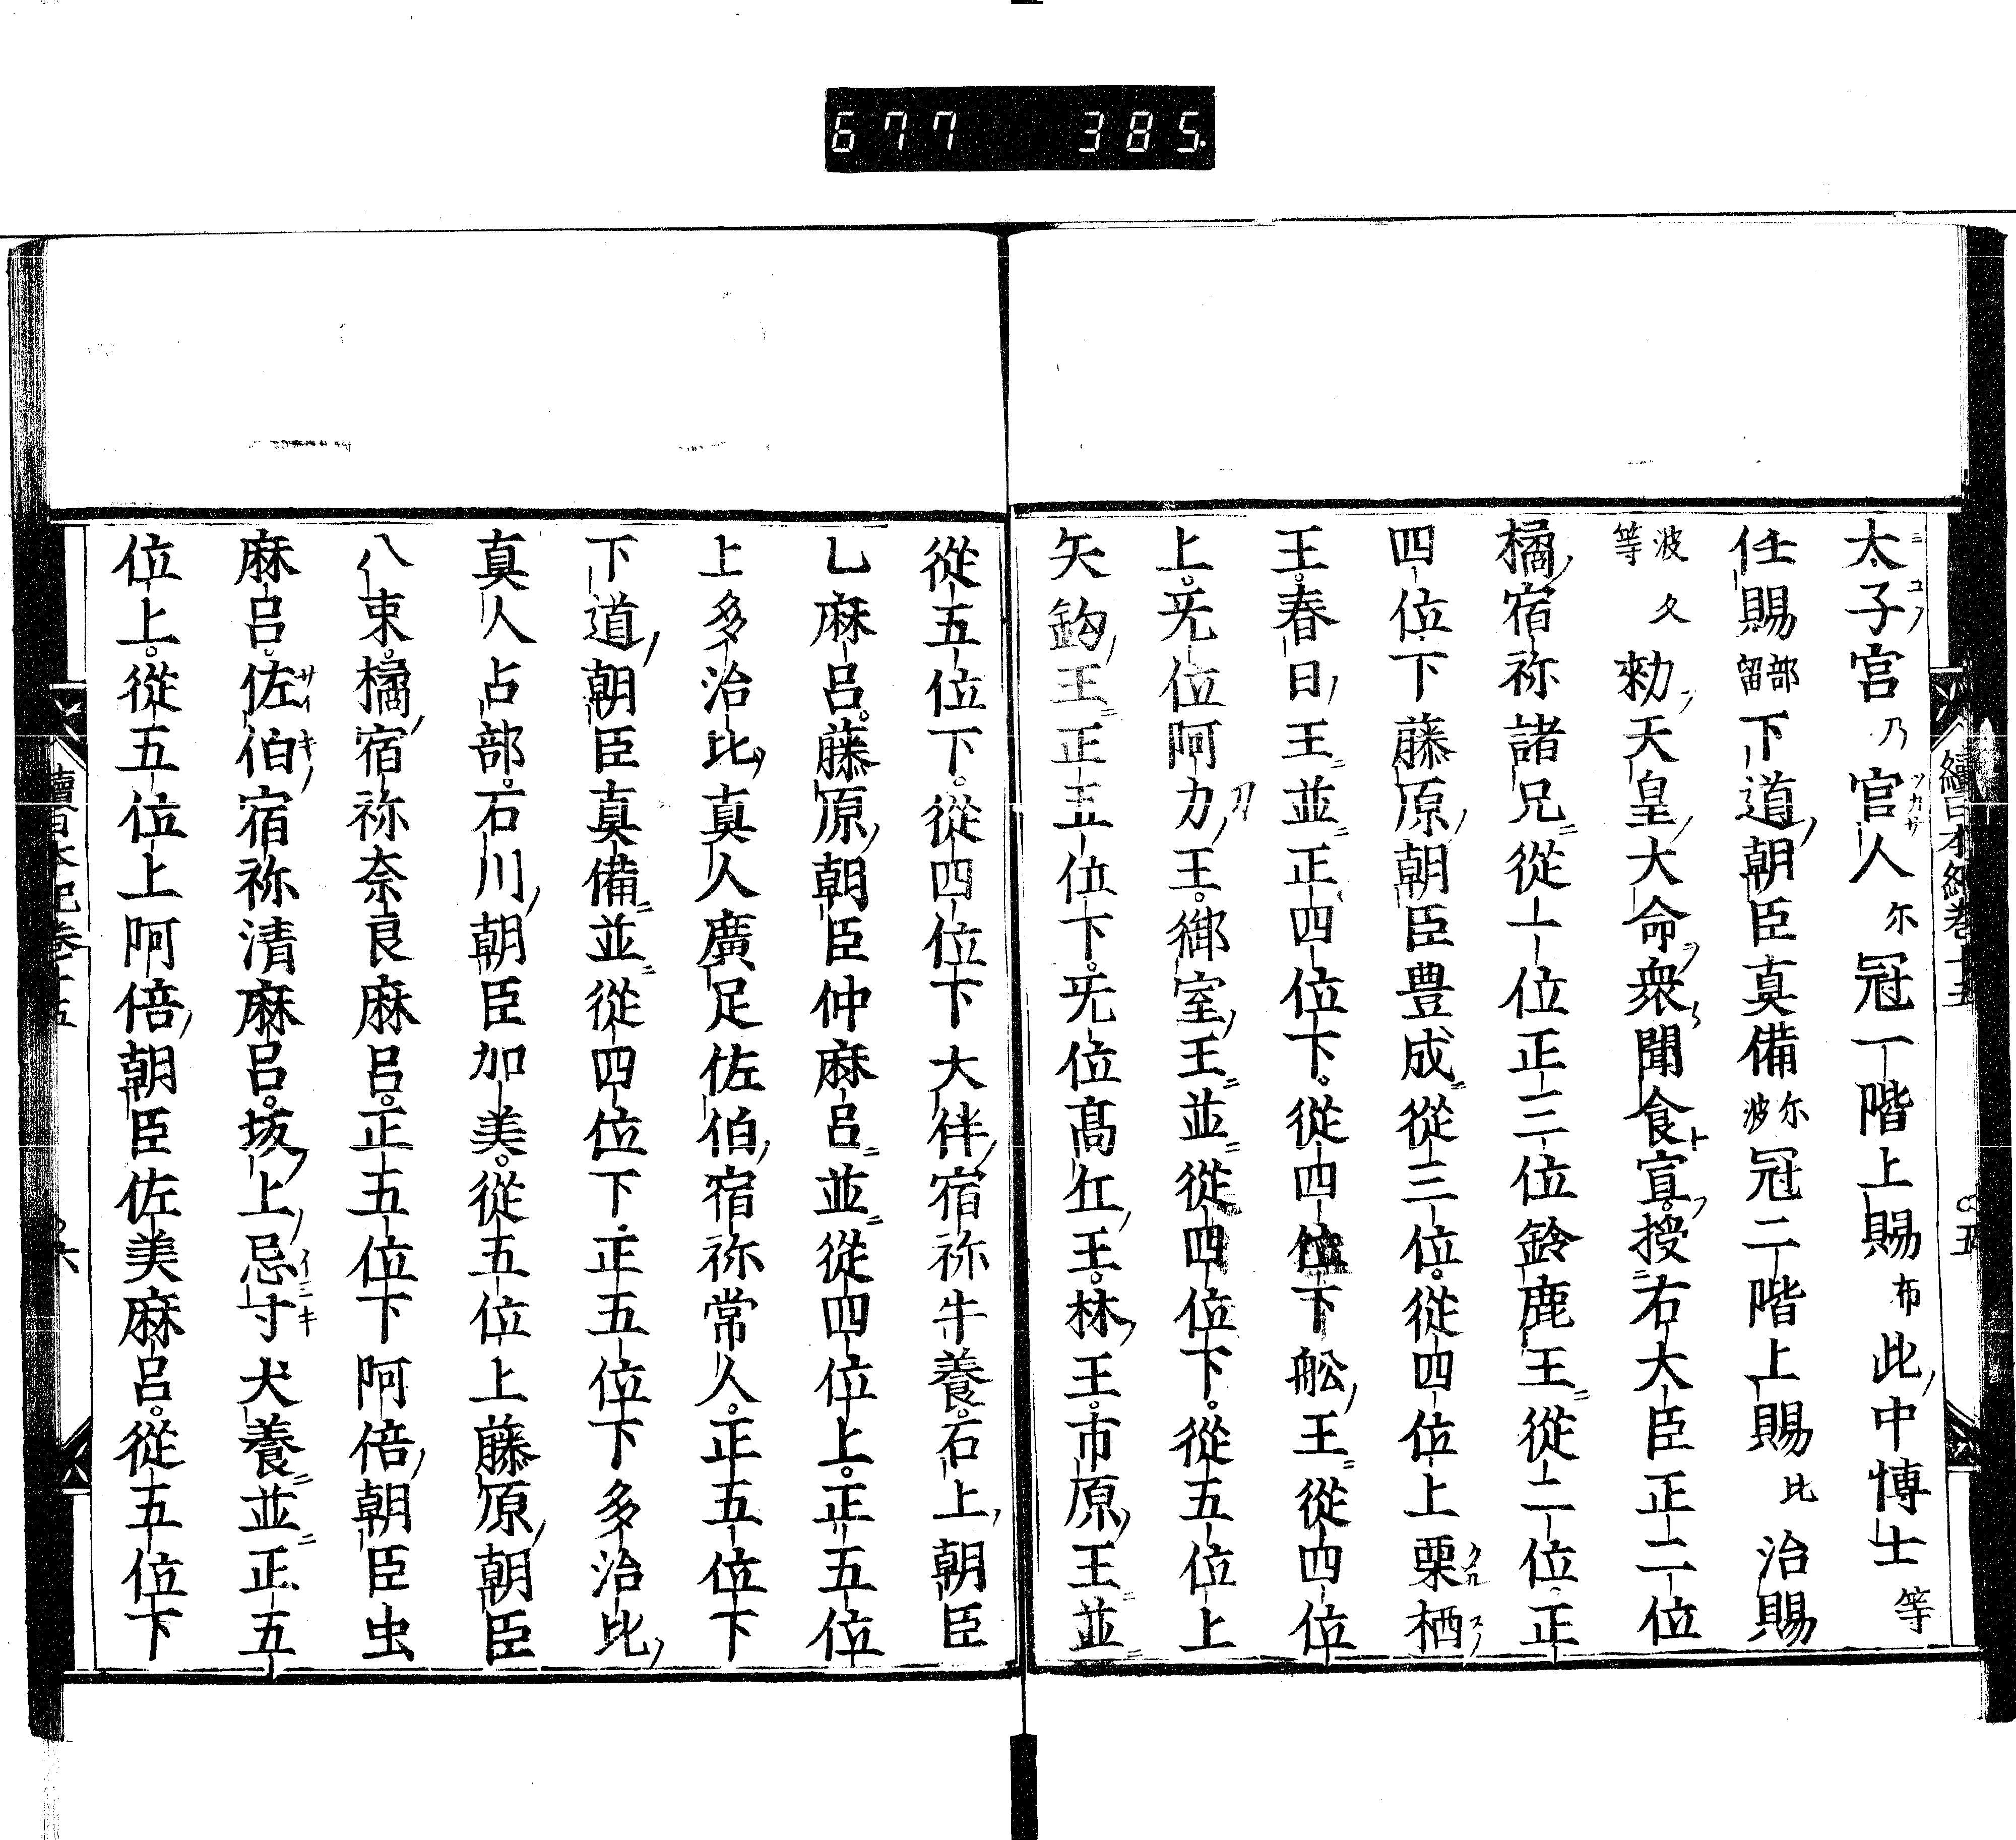 677 385.
續日本紀卷十五
五
太子宮乃官人尓冠一階上賜布此中博士等
任賜部留下道朝臣真備尓波冠二階上賜比治賜
波久等勑天皇大命衆聞食宣授右大臣正二位
橘宿祢諸兄從一位正三位鈴鹿王從二位正
四位下藤原朝臣豊成從三位從四位上栗栖
王春日王並正四位下從四位下舩王從四位
上旡位阿刀王御室王並從四位下從五位上
矢釣王正五位下旡位高丘王林王市原王並
從五位下從四位下大伴宿祢牛養石上朝臣
乙麻呂藤原朝臣仲麻呂並從四位上正五位
上多治比真人廣足佐伯宿祢常人正五位下
下道朝臣真備並從四位下正五位下多治比
真人占部石川朝臣加美從五位上藤原朝臣
八束橘宿祢奈良麻呂正五位下阿倍朝臣虫
麻呂佐伯宿祢清麻呂坂上忌寸犬養並正五
位上從五位上阿倍朝臣佐美麻呂從五位下
續日本紀卷十五
六